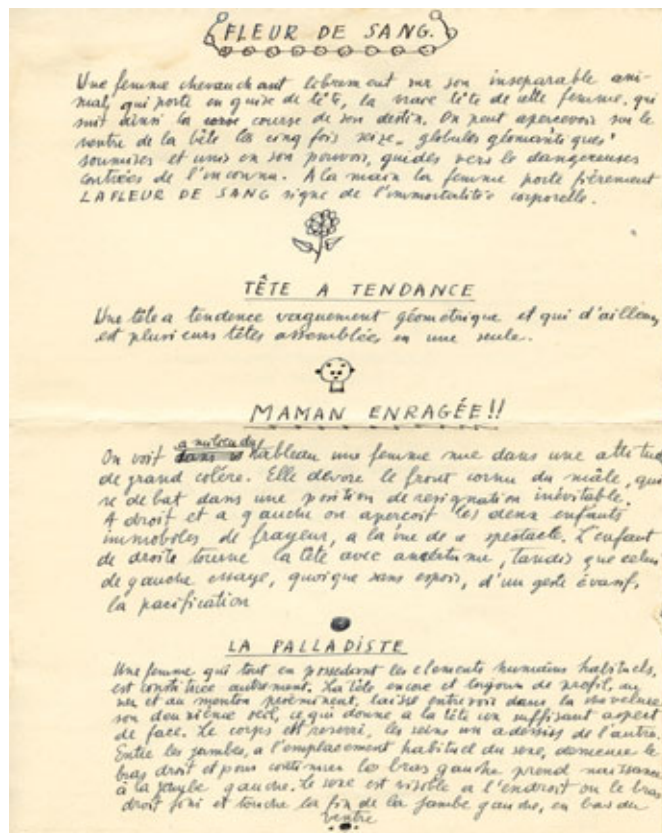 FLEUR DE SANG.
Une femme chevauchant librement sur son inseparable ani-
mal, qui porte en guise de tête, la vraie tête de cette femme, qui
suit ainsi la course de son destin. On peut apercevoir sur le
ventre de la bête les cinq fois seize globules géomantiques
soumises et unis en son pouvoir, guidés vers le dangereuses
contrées de l'inconnu. A la main la femme porte fièrement
LA FLEUR DE SANG signe de l'immortalité corporelle.
TÊTE A TENDANCE
Une tête a tendence vaguement géometrique et qui d'ailleurs
est plusieurs têtes assemblées en une seule.
MAMAN ENRAGÉE!!
On voit a milieu du tableau une femme nue dans une attitude
de grand colére. Elle dévore le front cornu du mâle, qui
se debat dans une position de resignation inévitable.
A droit et a gauche on aperçoit les deux enfants
immoboles de frayeur, a la vue de ce spectacle. L'enfant
de droite tourne la tête avec amertume, tandis que celui
de gauche essaye, quoique sans espoir, d'un geste évasif,
la pacification
LA PALLADISTE
Une femme qui tout en possedant les elements humains habituels,
est construite autrement. La tête encore et toujours de profil, au
nez et au menton proeminent, laisse entrevoir dans la chevelure
son deuxième œil, ce qui donne a la tête un suffisant aspect
de face. Le corps est reserré, les seins un a dessus de l'autre.
Entre les jambes, a l'emplacement habituel du sexe, demeure le
bras droit et pour continuer le bras gauche prend naissance
à la jambe gauche. Le sexe est visible a l'endroit ou le bras
droit fini et touche la fin de la jambe gauche, en bas du
ventre